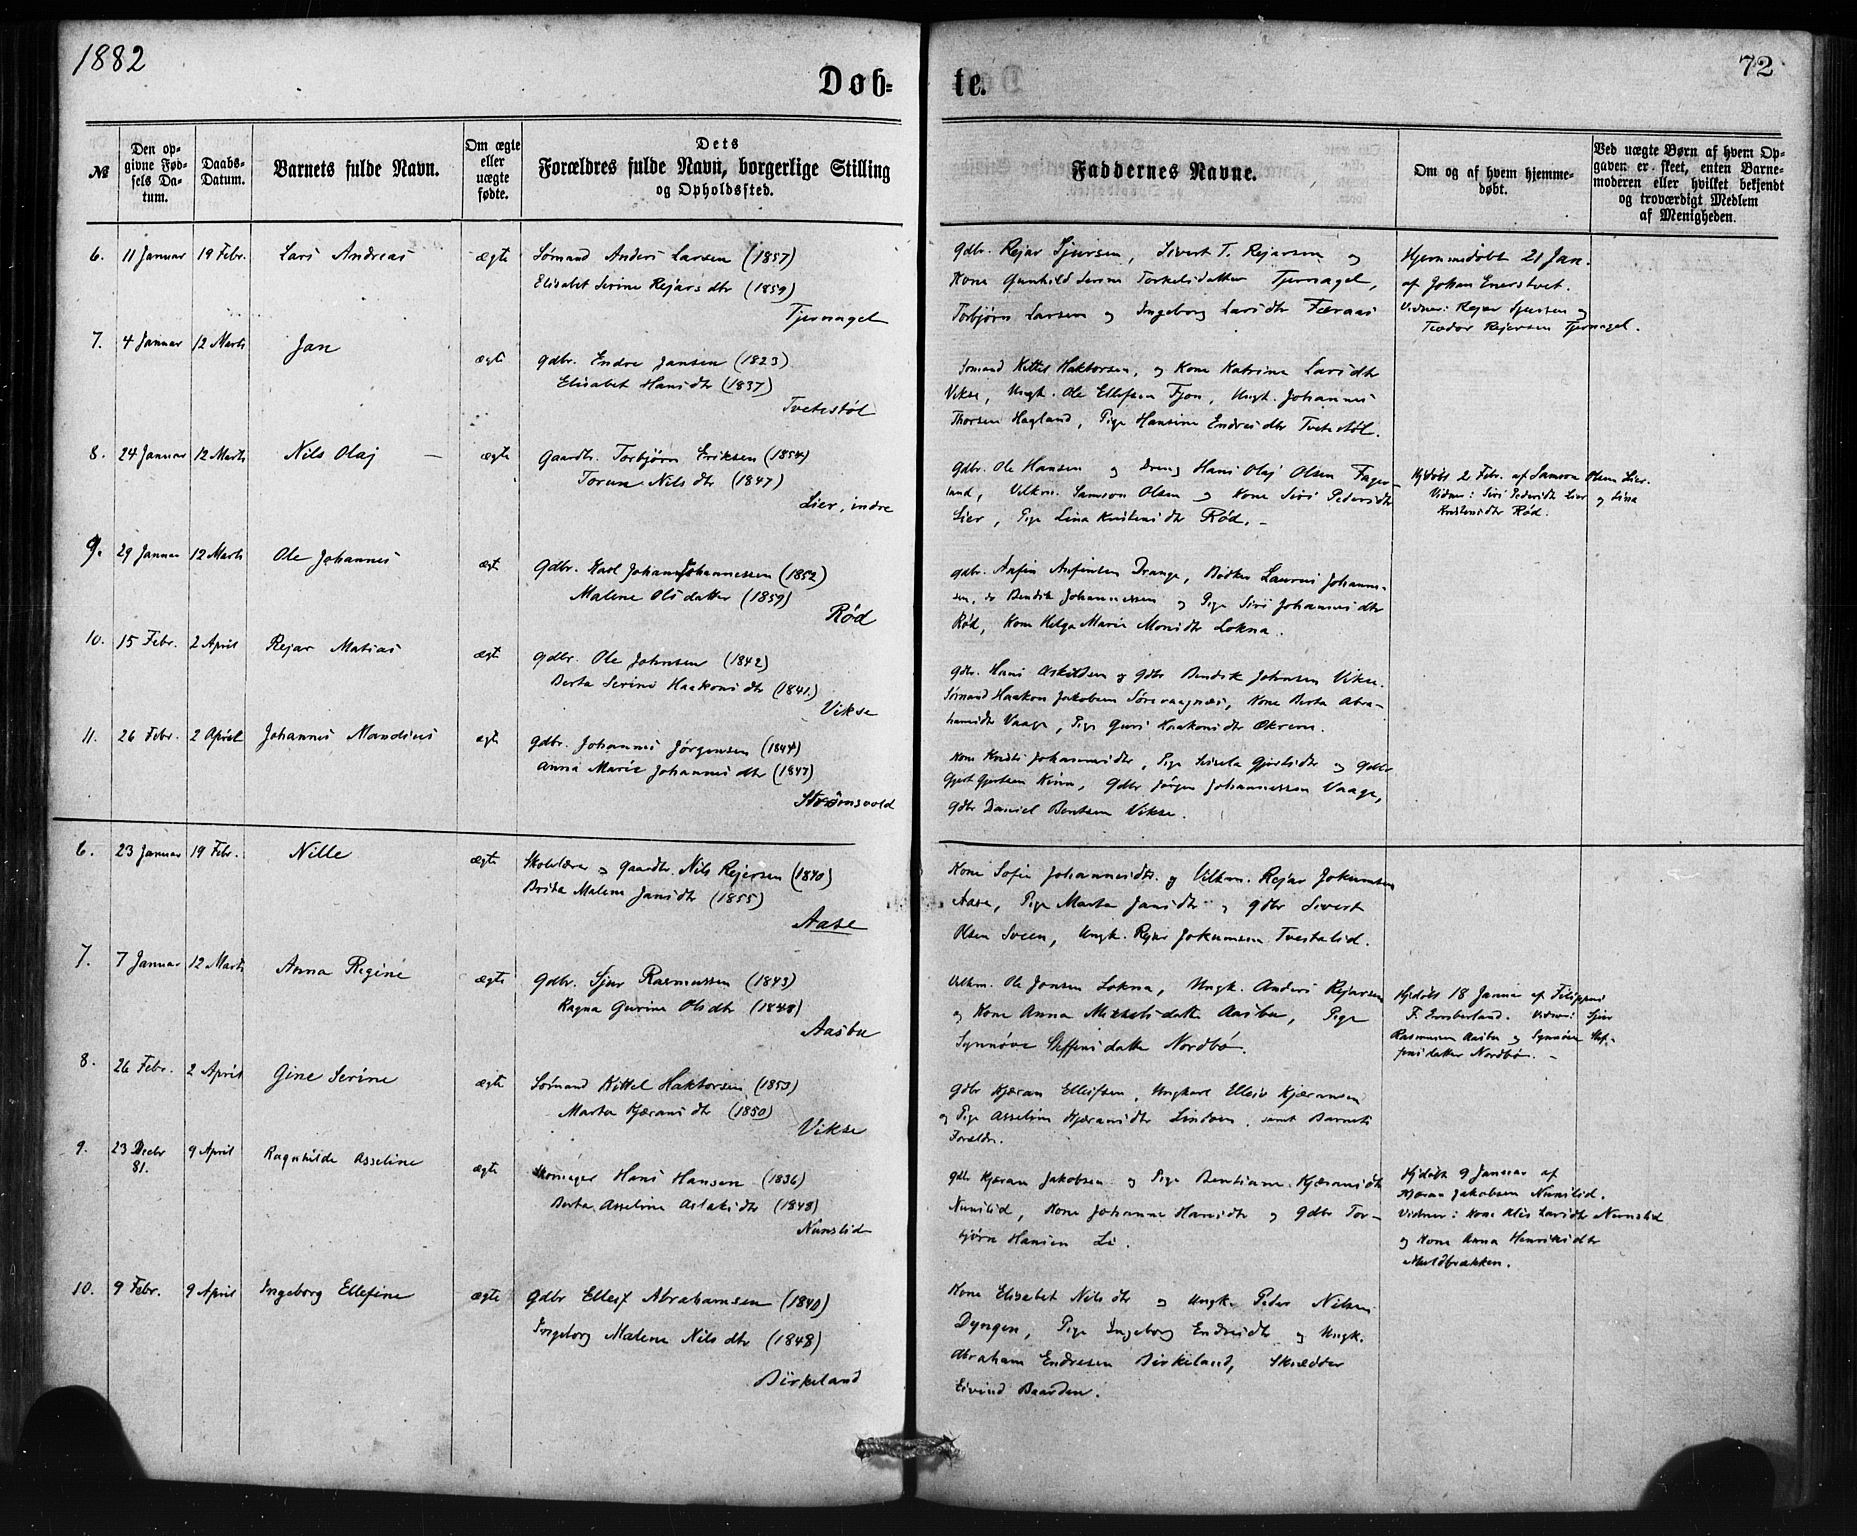 1882
72
Døb-
te.
№
Den op-
givne Fød-
sels Da-
tum.
Daabs-
Datum.
Barnets fulde Navn.
Om ægte
eller
uægte
fødte.
Dets
Forældres fulde Navn, borgerlige Stilling
og Opholdssted.
Faddernes Navne.
Om og af hvem hjemme-
døbt.
Ved uægte Børn af hvem Op-
gaven er skeet, enten Barne-
moderen eller hvilket bekjendt
og troværdigt Medlem
af Menigheden.
6. 11 Januar 19 Febr. Lars Andreas ægte Sømand Anders Larsen (1857)
Elisabet Serine Rejarsdtr (1859)
Tjernagel
Gdbr. Rejar Sjursen, Sivert T. Rejarsen og
Kone Gunhild Serine Torkelsdatter Tjernagel,
Torbjørn Larsen og Ingeborg Larsdtr Færaas
Hjemmedøbt 21 Jan.
af Johan Enerstvet.
Vidner: Rejar Sjursen og
Teodor Rejersen Tjernagel.
7. 4 Januar 12 Marts Jan ægte Gdbr. Endre Jansen (1823)
Elisabet Hansdtr (1837)
Tvetestøl
Sømand Kittel Haktorsen, og Kone Katrina Larsdtr
Vikse, Ungk. Ole Ellefsen Fjon, Ungk. Johannes
Thorsen Hagland, Pige Hansine Endresdtr Tvetestøl.
8. 24 Januar 12 Marts Nils Olaj – ægte Gaardbr. Torbjørn Eriksen (1854)
Torine Nilsdtr (1847)
Lier, indre
Gdbr. Ole Hansen og Dreng Hans Olaj Olsen Fager-
land, Velkm. Samson Olsen og Kone Siri Pedersdtr
Lier, Pige Lina Kristensdtr Rød. –
Hjdøbt 2 Febr. af Samson Olsen Lier.
Vidner: Siri Pedersdtr Lier og Lina
Kristensdtr Rød.
9. 29 Januar 12 Marts Ole Johannes ægt Gdbr. Karl Johan Johannessen (1852)
Malene Olsdatter (1859)
Rød
Gdbr. Anfin Anfinsen Drange, Bødker Laurits Johannes-
sen, Bendik Johannessen og Pige Siri Johannesdtr
Rød, Kone Helga Marie Monsdtr Lokna.
10. 15 Febr. 2 April Rejar Matias ægte Gdbr. Ole Johnsen (1842)
Berta Serine Haakonsdtr (1841)
Vikse
Gdbr. Hans Askildsen og Gdbr Bendik Johnsen Vikse.
Sømand Haakon Jakobsen Sørevaagnæs, Kone Berta Abra-
hamsdtr Vaage, Pige Guri Haakonsdtr Økrem.
11. 26 Febr. 2 April Johannes Mandius ægte Gdbr. Johannes Jørgensen (1844)
Anna Marie Johannesdtr (1847)
Strømsvold
Kone Kristi Johannesdtr, Pige Gjertsdtr og Gdbr
Gjert Gjertsen Kinn, Gdbr Jørgen Johannessen Vaage,
Gdbr Daniel Bentsen Vikse.
6. 23 Januar 19 Febr. Nille ægte Skolelærer og Gaardbr. Nils Rejersen (1840)
Brita Malene Jansdtr (1855)
Aase
Kone Sofie Johannesdtr. og Velkm. Rejar Jokumsen
Aase, Pige Marta Jansdtr og Gdbr Sivert
Olsen Sveen, Ungk. Rejar Jokumsen Tveitalid.
7. 7 Januar 12 Marts Anna Regine ægte Gdbr. Sjur Rasmussen (1843)
Ragna Gurine Olsdtr (1848)
Aasbu
Velkm. Ole Jonsen Lokna, Ungk. Anders Rejarsen
og Kone Anna Mikkelsdatter Aasbu, Pige
Synnøve Steffensdatter Nordbø.
Hjdøbt 18 Januar af Filippus
F. Emberland. Vidner: Sjur
Rasmussen Aasbu og Synnøve Stef-
fensdatter Nordbø. –
8. 26 Febr. 2 April Gine Serine ægte Sømand Kittel Haktorsen (1853)
Marta Kjæransdtr (1850)
Vikse
Gdbr Kjæran Elleifsen, Ungkarl Elleiv Kjæransen
og Pige Asseline Kjæransdtr Lindøen, samt Barnets
Forældre.
9. 23 Decbr
81. 9 April Ragnhilde Asseline ægte Skomager Hans Hansen (1836)
Berta Asseline Aslaksdtr (1848)
Nunslid
Gdbr Kjæran Jakobsen og Pige Bentianne Kjæransdtr
Nunslid, Kone Johanne Hansdtr og Gdbr Tor-
bjørn Hansen Li.
Hjdøbt 9 Januar af
Kjæran Jakobsen Nunslid.
Vidner: Kone Larsdtr Nunslid
og Kone Anna Henriksdtr
10. 9 Febr. 9 April Ingeborg Ellefine ægte Gdbr Elleif Abrahamsen (1840)
Ingeborg Malene Nilsdtr (1848)
Birkeland
Kone Elisabet Nilsdtr og Ungk. Peder Nilsen
Dyngen, Pige Ingeborg Endresdtr og Ungk.
Abraham Endresen Birkeland, Skrædder
Eivind Baardsen.